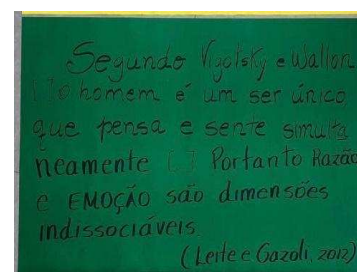 Segundo Vigotsky e Wallon
[...]o homem é um ser único
que pensa e sente simulta
neamente [...] Portanto Razão
e EMOÇÃO são dimensões
indissociáveis.
(Leite e Gazoli, 2012)